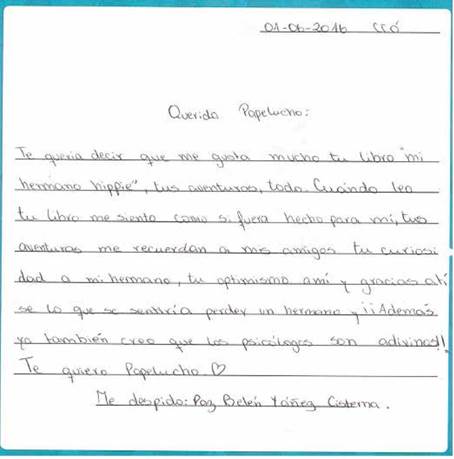 01-06-2016 CCÓ
Querido Papelucho:
Te queria decir que me gusta mucho tu libro "mi
hermano hippie", tus aventuras, todo. Cuando leo
tu libro me siento como si fuera hecho para mi, tus
aventuras me recuerdan a mis amigos tu curiosi
dad a mi hermano, tu optimismo ami y gracias ati
se lo que se sentiría perder un hermano y ¡¡Además
yo también creo que los psicólogos son adivinos!!
Te quiero Papelucho ♡
Me despido: Paz Belén Yáñez Cisterna.